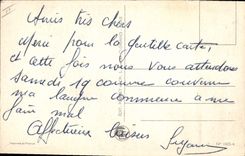 Amis très chers
Merci pour la gentille carte,
et cette fois nous vous attendons
Samedi 19 comme convenu
ma langue commence à me
faire mal
Affectueux baisers